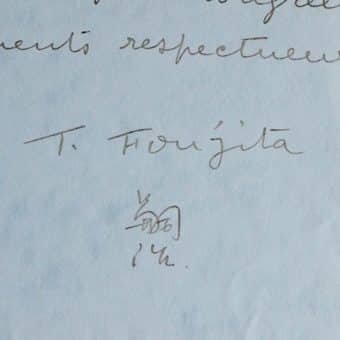 agrée
ments respectueu
T. Foujita
嗣治